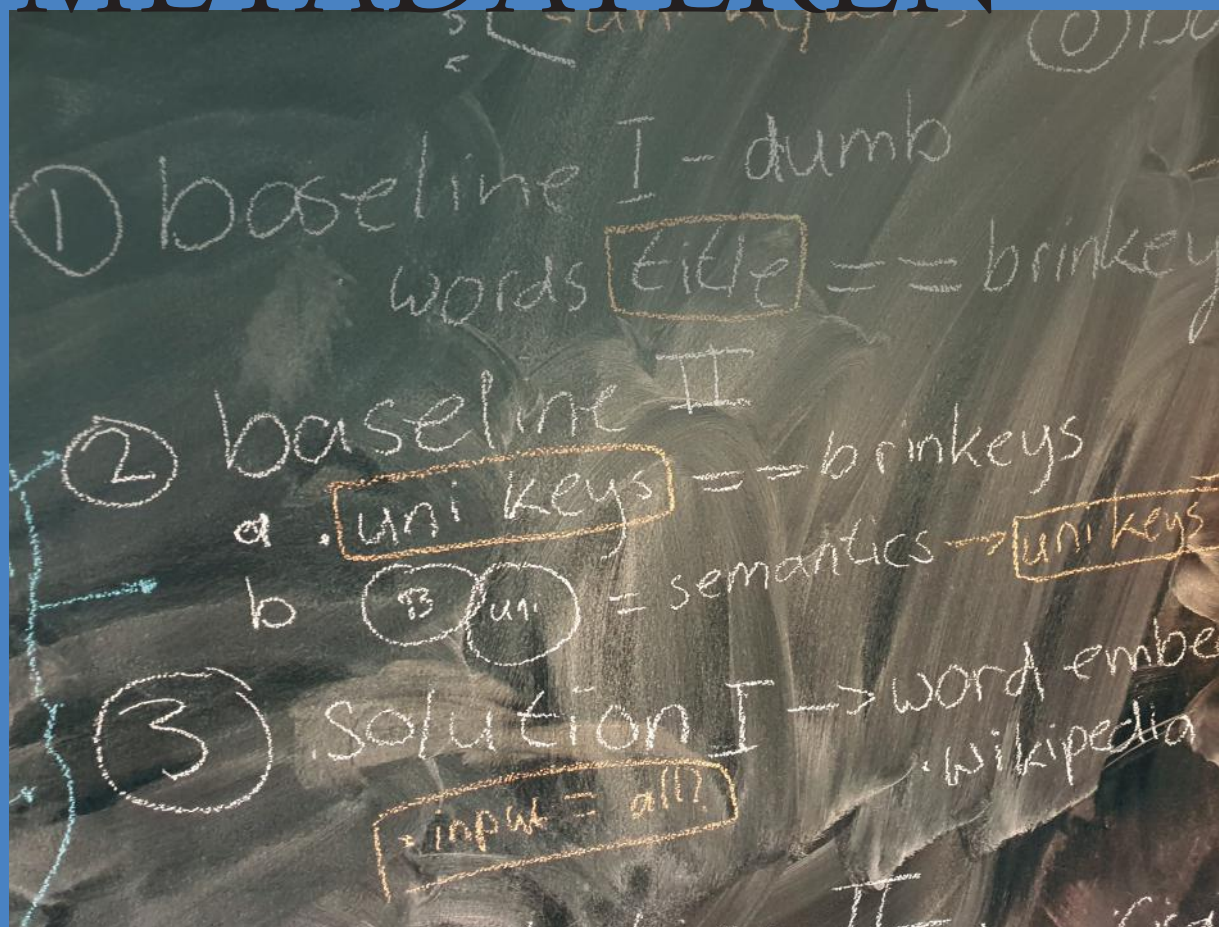 METADATEREN
① baseline I - dumb
words title == brinkey
② baseline II
a. uni keys == brinkeys
b B uni = semantics → uni keys
③ .solution I -> word embe
.wikipedia
- input = all?
II